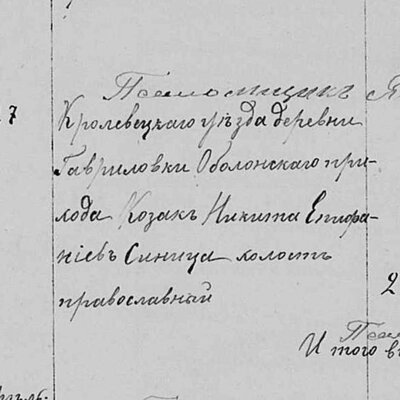 Псаломщикъ Я
7 Кролевецкаго уѣзда деревни
Гавриловки Оболонскаго при-
хода Козакъ Никита Епифа-
ніевъ Синица холостъ
православный
2
И того въ